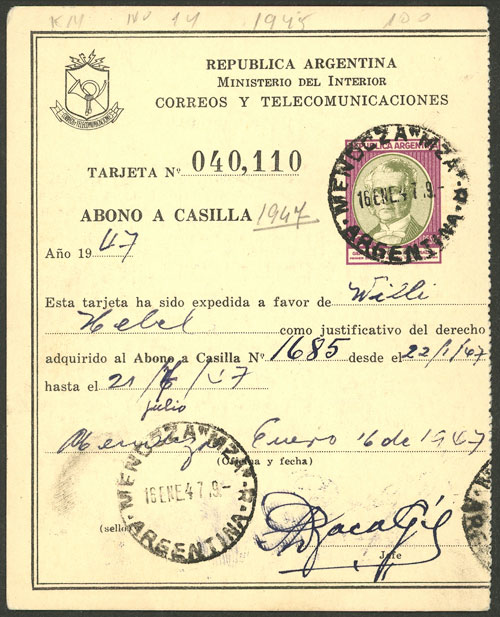 KM No 14 1945 100
REPUBLICA ARGENTINA
MINISTERIO DEL INTERIOR
CORREOS Y TELECOMUNICACIONES
CORREOS Y TELECOMUNICACIONES
TARJETA Nº 040,110
REPUBLICA ARGENTINA
MENDOZA "MZA" - R - ARGENTINA
16 ENE 47 9.-
ABONO A CASILLA 1947
Año 1947
Esta tarjeta ha sido expedida a favor de Willi
Hebel como justificativo del derecho
adquirido al Abono a Casilla Nº 1685 desde el 22/1/47
hasta el 21/7/47
julio
Mendoza Enero 16 de 1947
(Oficina y fecha)
MENDOZA "MZA" - R - ARGENTINA
16 ENE 47 9.-
(sello)
Jefe